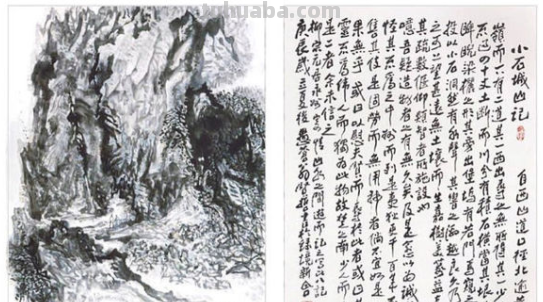 tuhuaba.com
小石城山记 自西山道口径北逾黄
嶺而下有二道其一西出尋之無所得其一少
不過四十丈土斷而川分有積石橫當其垠
睥睨梁欐之形其旁出堡塢有若門焉窺之
投以小石洞然有水聲其響之激越良久乃
之可上望甚遠無土壤而生嘉樹美箭益奇
其疏數偃仰類智者所施設也
噫吾疑造物者之有無久矣及是愈以為誠
怪其不為之中州而列是夷狄更千百年不
售其伎是固勞而無用神者倘不宜如是
果無乎或曰以慰夫賢而辱於此者或曰其
靈不為偉人而獨為此物故楚之南少人而
是二者余未信之
柳宗元
庚辰歲